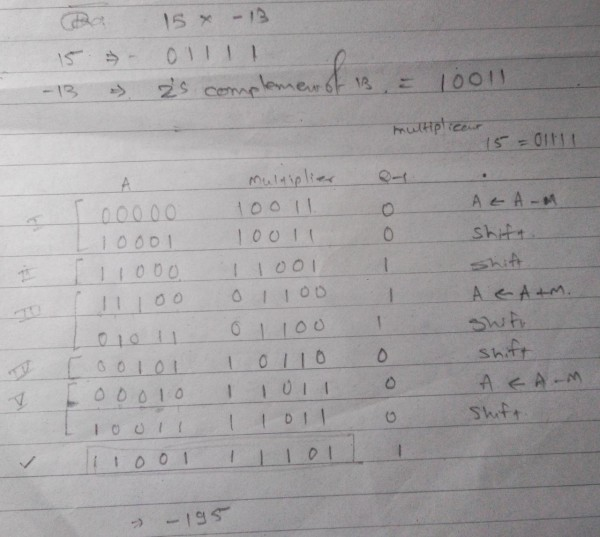 15 × -13
15 ⇒ - 01111
-13 ⇒ 2's complement of 13. = 10011
15 = 01111
A multiplier Q-1
I 00000 10011 0 A ← A - M
10001 10011 0 Shift.
II 11000 11001 1 Shift
III 11100 01100 1 A ← A + M.
01011 01100 1 Shift
IV 00101 10110 0 Shift
V 00010 11011 0 A ← A - M
10011 11011 0 Shift.
✓ 11001 11101 1
⇒ -195